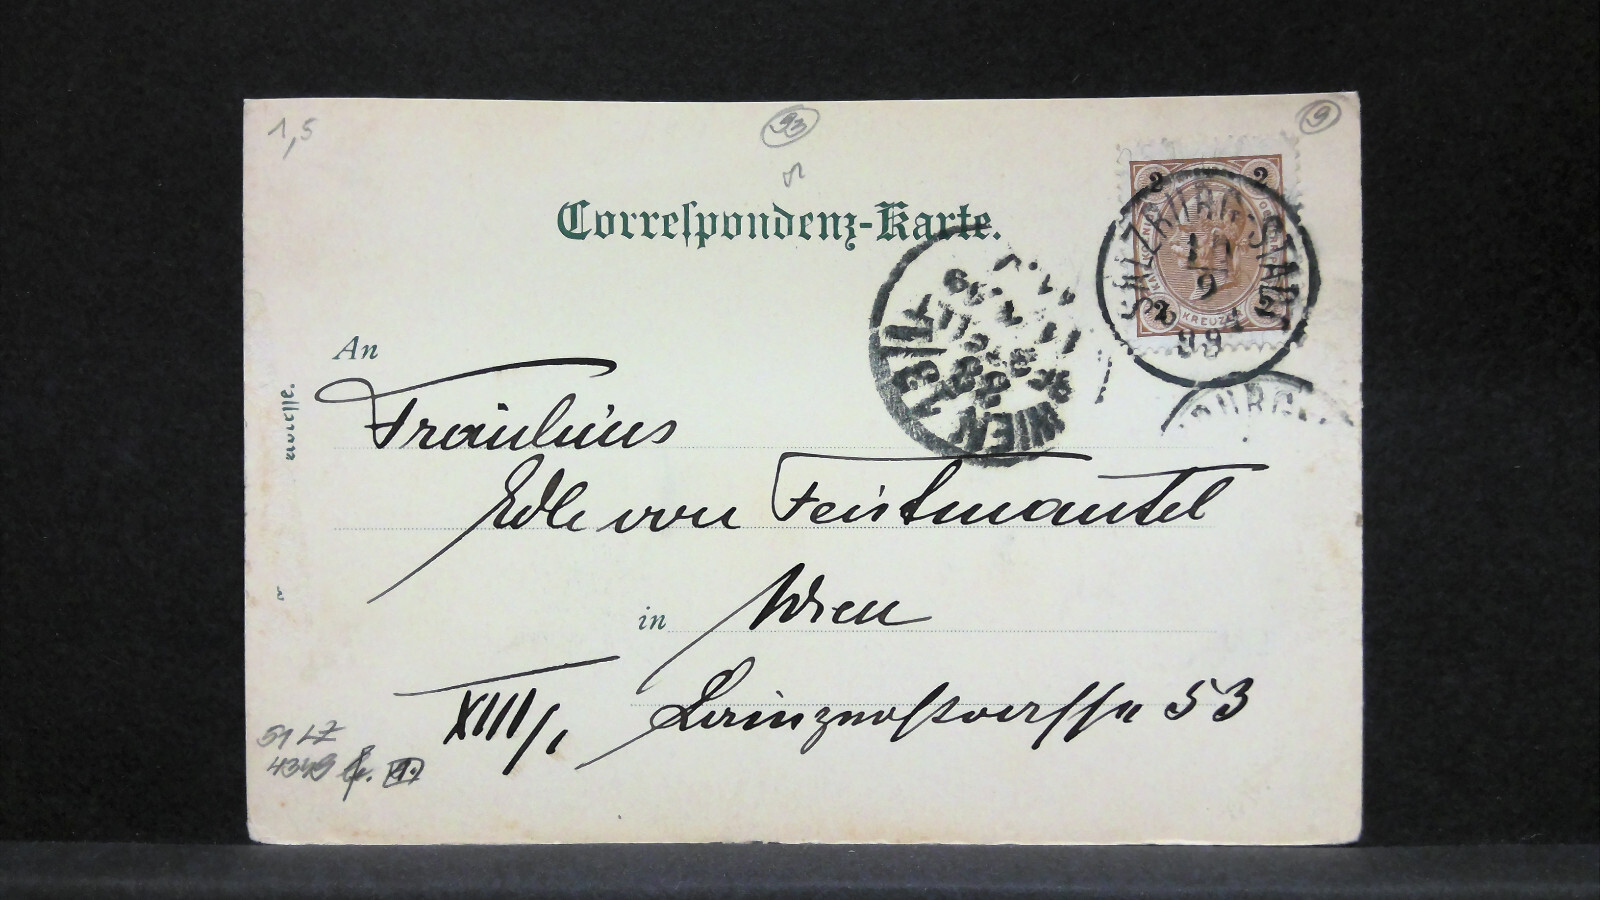 1,5
93
9
Correſpondenz-Karte.
2 2
SALZBURG STADT
10
9
99
2 2
KREUZER
WIEN 13/1
WIEN
BURG
An
Fräuleins
Edle von Feistmantel
in Wien
XIII/1 Lainzerstrasse 53
51 LZ